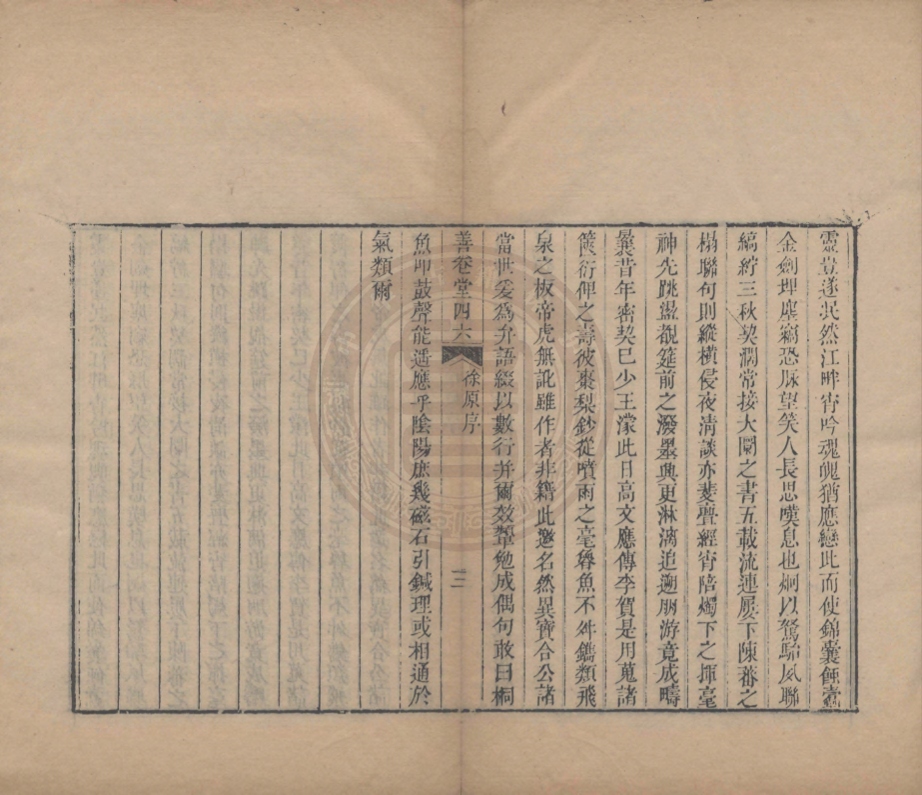 靈豈遂泯然江畔宵吟魂魄猶應戀此而使錦囊蝕蠹
金劍埋塵竊恐脉望笑人長思嘆息也炯以駑駘夙聯
縞紵三秋契濶常接大闌之書五載流連屢下陳蕃之
榻聯句則縱橫侵夜清談亦亹亹經宵陪燭下之揮毫
神先跳盪覩筵前之潑墨興更淋漓追遡朋游竟成疇
曩昔年密契已少王濛此日高文應傳李賀是用蒐諸
篋衍俾之壽彼棗梨鈔從噴雨之毫魯魚不舛鐫類飛
泉之板帝虎無訛雖作者非籍此邀名然異寶合公諸
當世爰為弁語綴以數行并爾效顰勉成偶句敢曰桐
善卷堂四六
徐原序
三
魚叩鼓聲能遥應乎陰陽庶幾磁石引鍼理或相通於
氣類爾